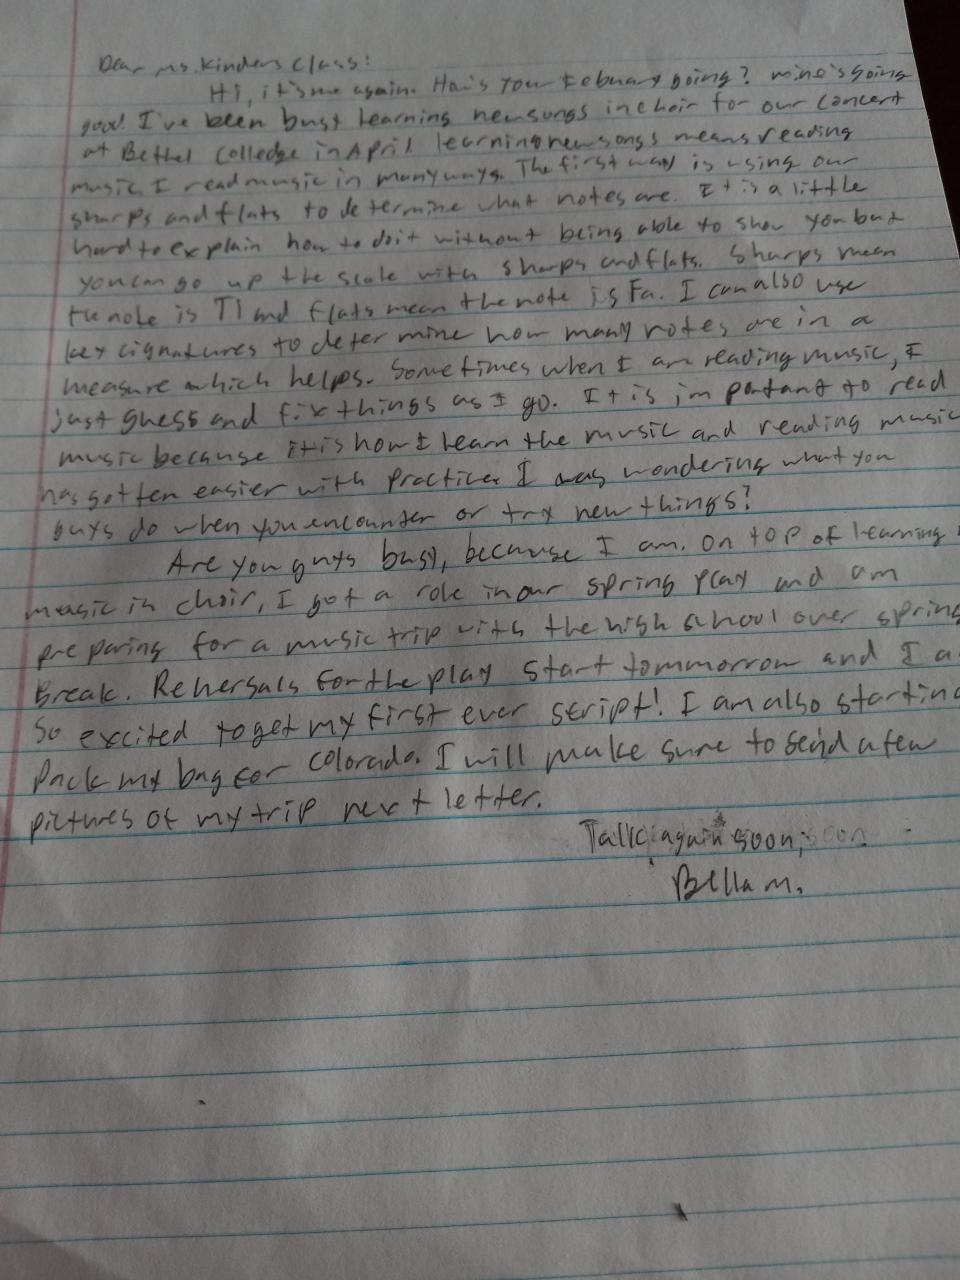 Dear Ms. Kinders Class:
Hi, it's me again. How's your Febuary going? mine's going
good! I've been busy learning new songs in choir for our concert
at Bethel Colledge in April learning new songs means reading
music, I read music in many ways. The first way is using our
sharps and flats to determine what notes are. It is a little
hard to explain how to do it without being able to show you but
you can go up the scale with sharps and flats. Sharps mean
the note is TI and flats mean the note is Fa. I can also use
key cignatures to determine how many notes are in a
measure which helps. Sometimes when I am reading music, I
just ghess and fix things as I go. It is important to read
music because it is how I learn the music and reading music
has gotten easier with practice. I was wondering what you
guys do when you encounter or try new things?
Are you guys busy, because I am. On top of learning
music in choir, I got a role in our spring play and am
preparing for a music trip with the high school over spring
Break. Rehersals for the play start tommorrow and I a
so excited to get my first ever script! I am also startin
pack my bag for Colorado. I will make sure to send a few
pictures of my trip next letter.
Talk again soon,
Bella M.